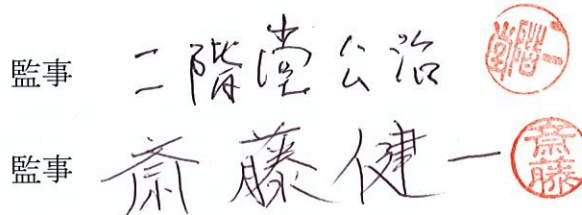 監事 二階堂公治 二階堂
監事 斎藤健一 斎藤